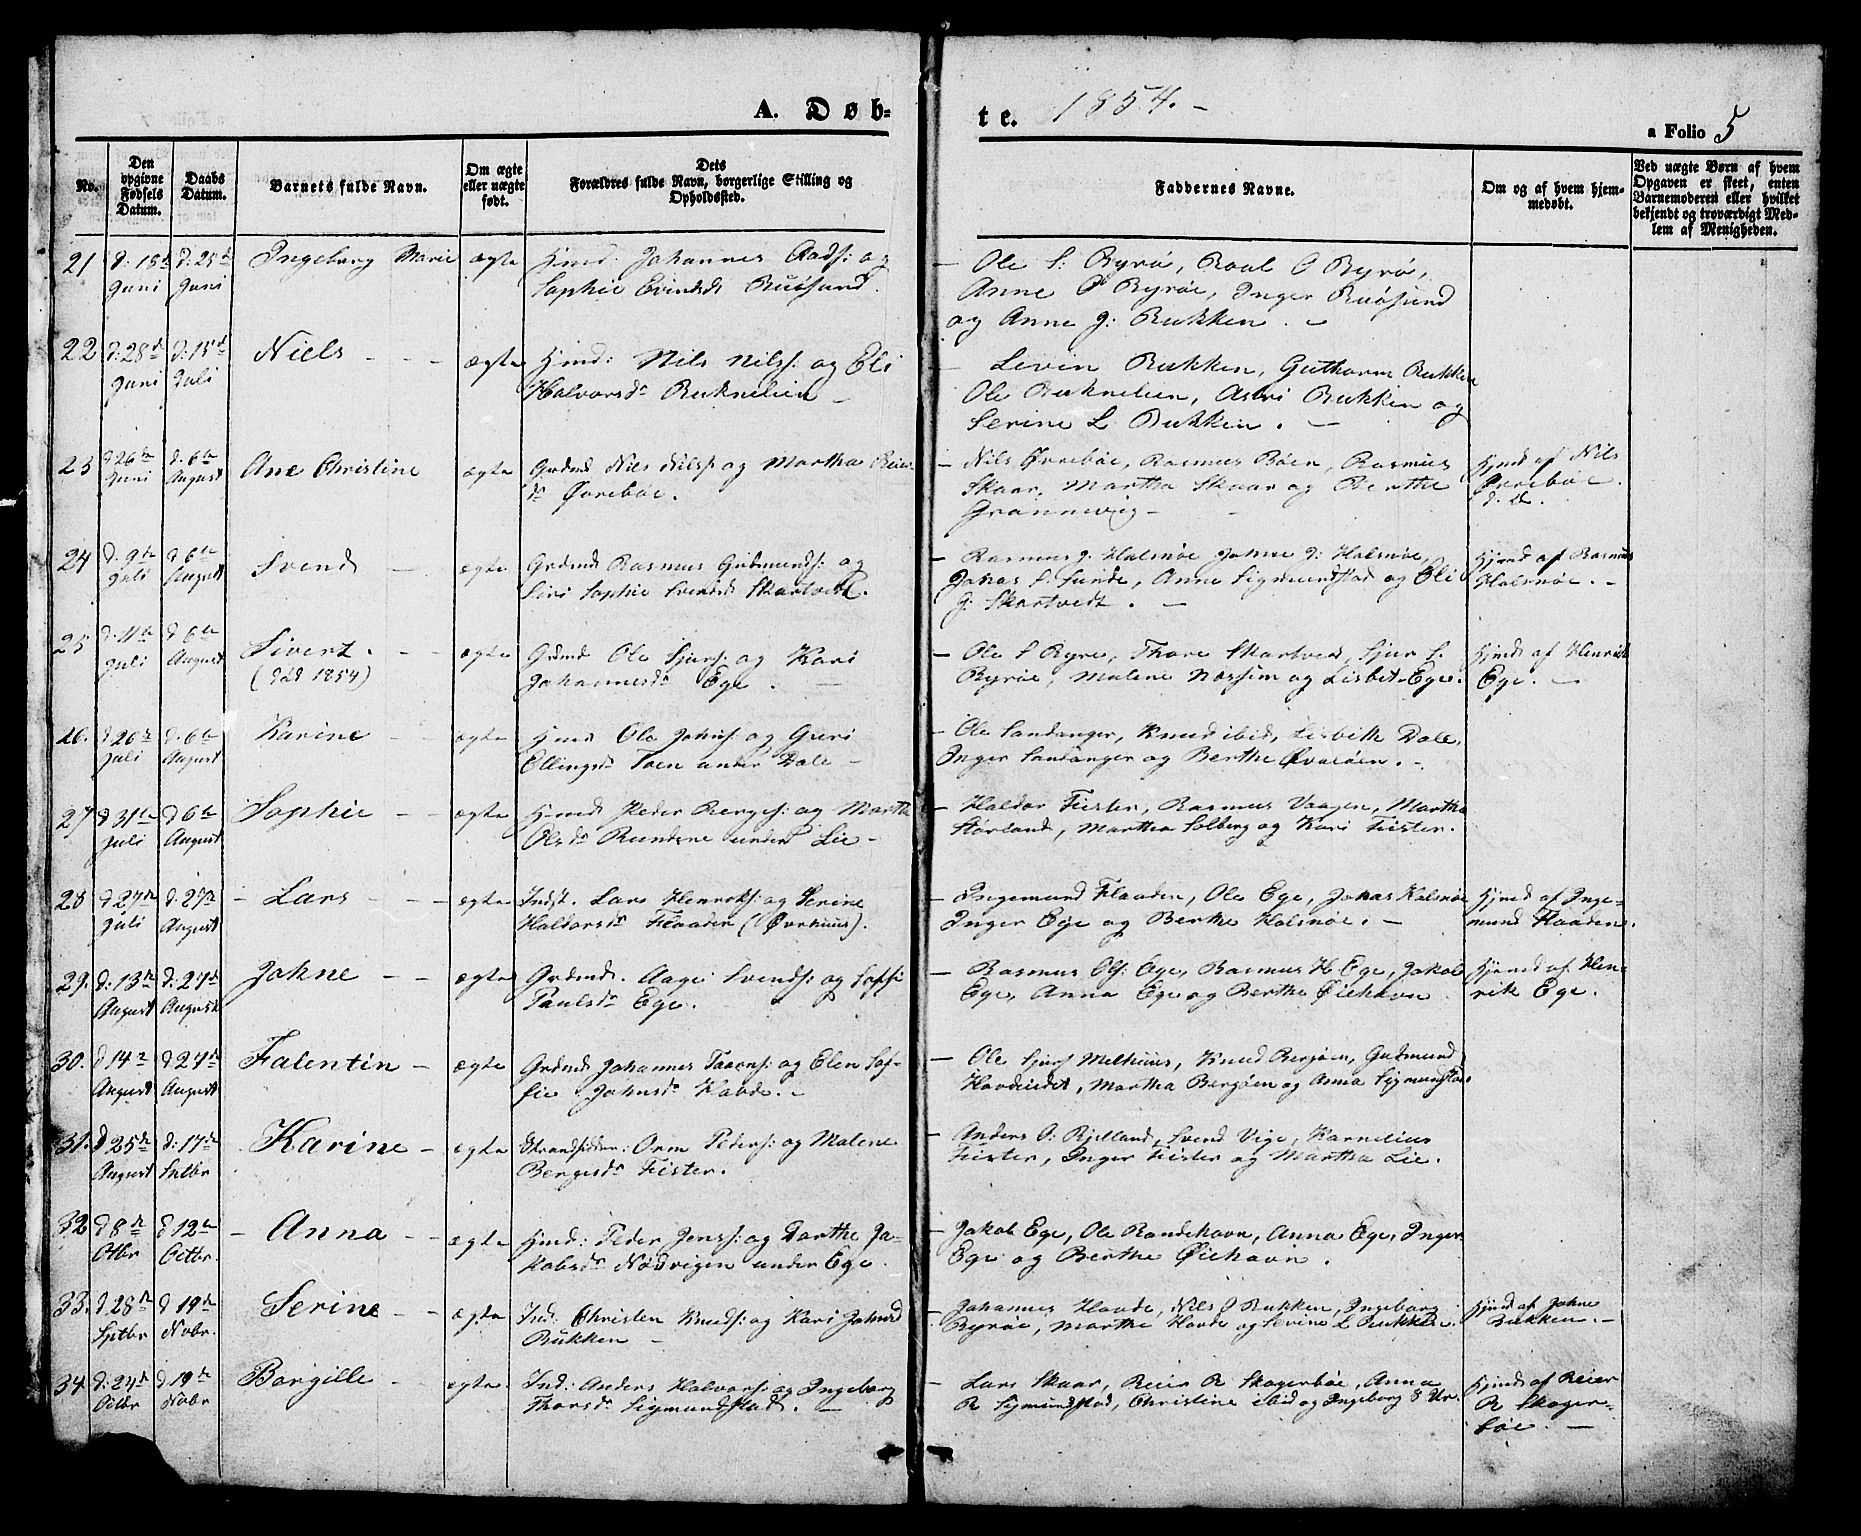 A. Døb-
te. 1854. -
a Folio 5
No.
Den opgivne Fødsels Datum.
Daabs Datum.
Barnets fulde Navn.
Om ægte eller uægte født.
Dets Forældres fulde Navn, borgerlige Stilling og Opholdssted.
Faddernes Navne.
Om og af hvem hjemmedøbt.
Ved uægte Børn af hvem Opgaven er skeet, enten Barnemoderen eller hvilket bekjendt og troværdigt Medlem af Menigheden.
21 Juni Juni Ingeborg Marie ægte Hmd: Johannes Aads: og
Sophie Evindsd
Ole S: Byrø, Poul O Byrø,
Anne O Byrøe, Inger
og Anne J: Bukken. -
22 d: 28de Juni d: 15de Juli Niels - - - ægte Hmd: Nils Nils: og Eli
Halvorsdr Bukkelien -
- Levin Bukken, Guthorm Bukken
Ole Astri Bukken og
Serine L. Bukken. -
23 d 26de Juni d. 6te August Ane Christine ægte Grdmd Nils Nils: og Martha Reiersdr Øvrebøe.
- Nils Øvrebøe, Rasmus Bøen, Rasmus
Skaar, Martha Skaar og Berthe
Hjmd af Nils
Øvrebøe.
24 d. 9de Juli d 6te August Svend - ægte Grdmd Rasmus Gudmunds: og
Siri Sophie Svendsd Skartvedt.
- Rasmus J. Halsnøe Johne J: Halsnøe,
Johas S. Sunde, Anne Sigmundstad og Eli
J: Skartvedt. -
Hjmd af Rasmus
Halsnøe. -
25 d. 11te Juli d 6te August Sivert. - - ægte Grdmd Ole Sjurs: og Kari
(død 1854)
Johannesdr Ege. -
- Ole S Byre, Thore Skartved, Sjur S.
Byrøe, Malene Næssim og Lisbet Ege.
Hjmd af Henrik
Ege. -
26. d 26de Juli d. 6te August Karine - - ægte Hmd Ole Johns: og Guri
Ellingsd under Dale -
- Ole Sandanger, Knud ibid, Lisbeth Dale,
Inger Sandanger og Berthe
27 d 31te Juli d 6te August Sophie - - ægte Hmd Peder Berges: og Martha
Olsdr under Lie -
- Haldor Fister, Rasmus Vaagen, Martha
Størland, Martha Solberg og Kari Fister.
28 d 27de Juli d. 27de August - Lars - - - ægte Indst. Lars Henriks: og Serine
Haldorsdr
- Ingemund Flaaden, Ole Ege, Johas Halsnøe
Inger Ege og Berthe Halsnøe. -
Hjmd af Inge-
mund Flaaden.
29. d: 13de August d: 27de August Johne - - ægte Grdmd. Aage Svends: og Sophi
Paulsdr Ege.
- Rasmus Ols: Ege, Rasmus H Ege, Jakob
Ege, Anna Ege og Berthe Øiehavn.
Hjmd af Hen-
rik Ege.
30. d 14de August d 24de August Falentin - ægte Grdmd Johannes og Elen Sof-
fie Johnsdr
- Ole Sjurs Melhuus, Knud Bergøen, Gudmund
Martha Bergøen og Anna Sigmunstad
31. d 25de August d: 17de Sptbr Karine - ægte Strandsidder: Orm Peders: og Malene
Bergesdr Fister.
- Anders O: Kjelland, Svend Vige, Kornelius
Fister, Inger Fister og Martha Lie.
32 d 8de Otbr d 12te Octbr. - Anna - - ægte Hmd: Peder Jens: og Dorthe Ja-
kobsdr Nodvigen under Ege.
- Jakob Ege, Ole Randehavn, Anna Ege, Inger
Ege og Berthe Øiehavn.
33. d 28de Sptbr d 19de Novbr. Serine - - ægte Ind. Christen Knuds: og Kari Johnsd
Bukken -
- Johannes Hovde, Nils O Bukken, Ingeborg
Byrøe, Marthe Hovde og Serine L Bukken.
Hjmd af Johne
Bukken. -
34 d: 24de Octbr d 19de Novbr Borgille - ægte. Ind: Anders Halvors: og Ingeborg
Thorsdr Sigmundstad. -
- Lars Skaar, Reier R Skogerbøe, Anna
R Sigmundstad, Christine ibid og Ingeborg
Hjmd af Reier
R Skoger-
bøe. -